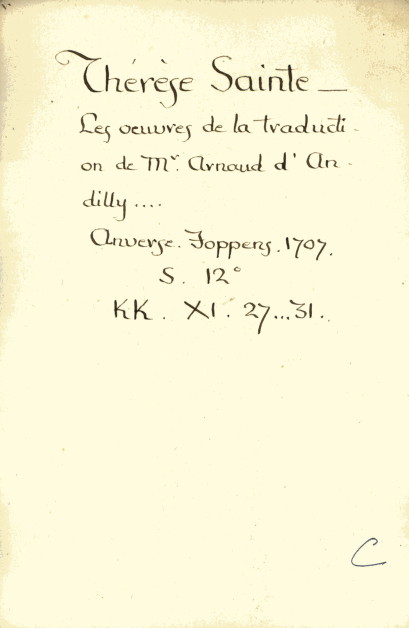 Thérèse Sainte —
Les oeuvres de la traducti-
on de Mr. Arnaud d'An-
dilly....
Anverse. Foppens. 1707.
S. 12°
KK. XI. 27...31.
C